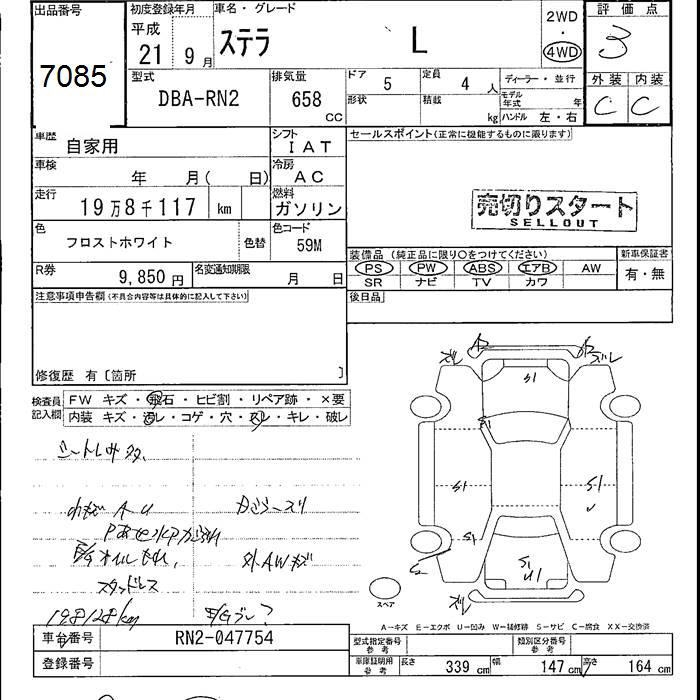 出品番号 初度登録年月 車名・グレード 評価点
平成 2WD
21 9月 ステラ L ・ 3
7085 4WD
型式 排気量 ドア 5 定員 4人 ディーラー・並行 外装 内装
DBA-RN2 658 形状 積載 モデル年式 年 C C
CC kg ハンドル 左・右
車歴 自家用 シフト IAT セールスポイント(正常に機能するものに限ります)
車検 年 月( 日) 冷房 AC
走行 19万8千117 km 燃料 ガソリン 売切りスタート
SELLOUT
色 フロストホワイト 色替 色コード 59M
装備品 (純正品に限り○をつけてください) 新車保証書
R券 9,850円 名変通知期限 月 日 PS PW ABS エアB AW 有・無
SR ナビ TV カワ
注意事項申告欄(不具合内容等は具体的に記入して下さい) 後日品
修復歴 有〔箇所 〕
検査員記入欄 FW キズ・飛石・ヒビ割・リペア跡・×要
内装 キズ・汚レ・コゲ・穴・スレ・キレ・破レ
小キズ AU
スタッドレス
198128km
スペア
A-キズ E-エクボ U-凹み W-補修跡 S-サビ C-腐食 XX-交換済
車台番号 RN2-047754 型式指定番号 参考 類別区分番号 参考
登録番号 車庫証明用 参考 長さ 339cm 幅 147cm 高さ 164cm